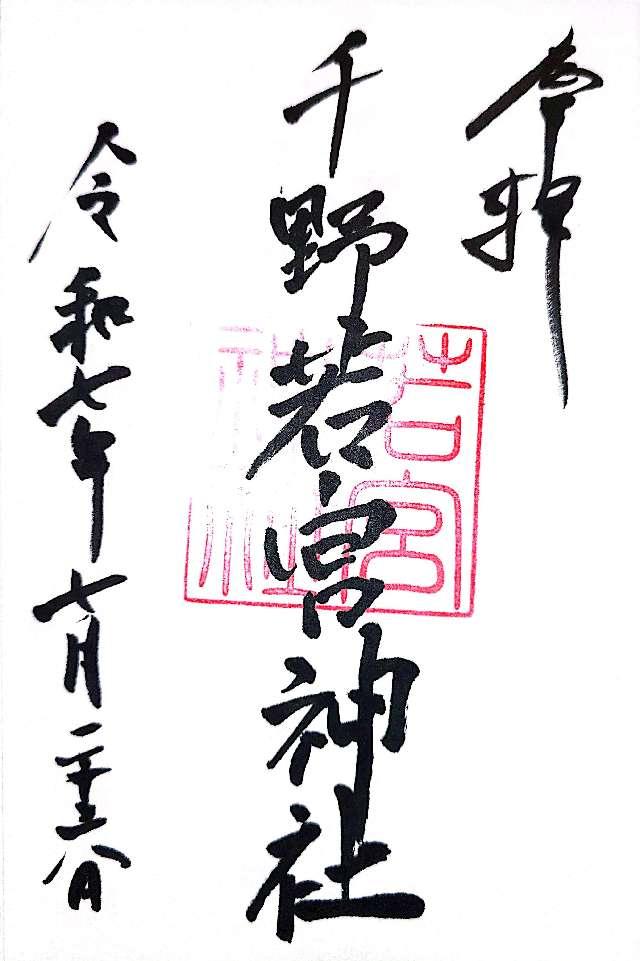 奉拝
千野若宮神社
若宮
神社
令和七年七月二十六日